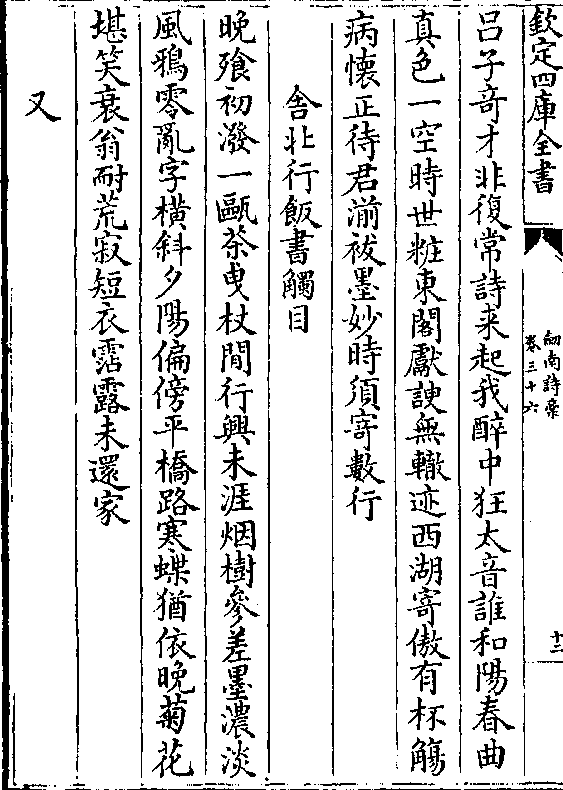 欽定四庫全書
劒南詩槀
卷三十六
十二
呂子竒才非復常詩来起我醉中狂太音誰和陽春曲
真色一空時世粧東閣獻諛無轍迹西湖寄傲有杯觴
病懐正待君湔祓墨妙時須寄數行
舎北行飯書觸目
晚飱初潑一甌茶曳杖閒行興未涯烟樹參差墨濃淡
風鴉零亂字橫斜夕陽偏傍平橋路寒蝶猶依晚菊花
堪笑衰翁耐荒寂短衣霑露未還家
又